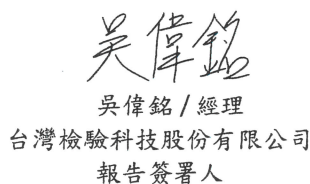 吳偉銘
吳偉銘/經理
台灣檢驗科技股份有限公司
報告簽署人